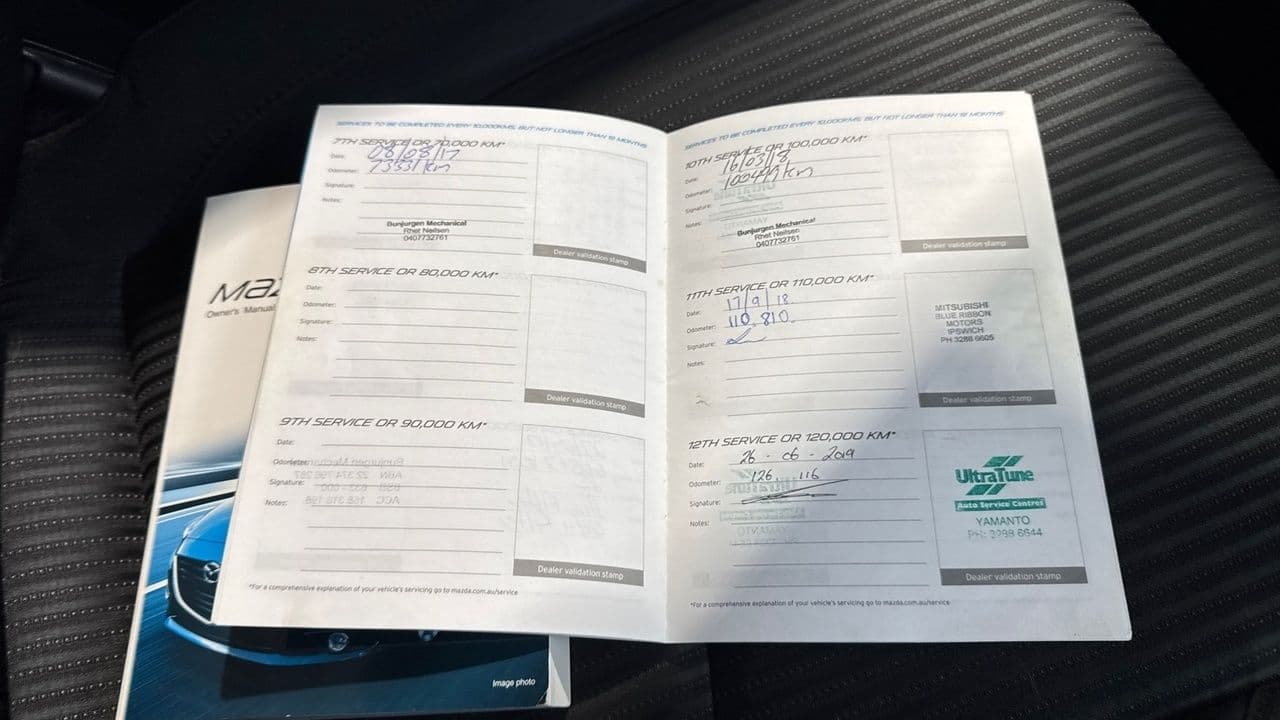 SERVICES TO BE COMPLETED EVERY 10,000KMS, BUT NOT LONGER THAN 12 MONTHS
7TH SERVICE OR 70,000 KM*
Date: 08/08/17
Odometer: 73331 km
Signature:
Notes:
Bunjurgen Mechanical
Rhet Neilsen
0407732761
Dealer validation stamp
8TH SERVICE OR 80,000 KM*
Date:
Odometer:
Signature:
Notes:
Dealer validation stamp
9TH SERVICE OR 90,000 KM*
Date:
Odometer:
Signature:
Notes:
Dealer validation stamp
*For a comprehensive explanation of your vehicle's servicing go to mazda.com.au/service
SERVICES TO BE COMPLETED EVERY 10,000KMS, BUT NOT LONGER THAN 12 MONTHS
10TH SERVICE OR 100,000 KM*
Date: 16/03/18
Odometer:
Signature:
Notes:
Bunjurgen Mechanical
Rhet Neilsen
0407732761
Dealer validation stamp
11TH SERVICE OR 110,000 KM*
Date: 17/9/18
Odometer: 110 810
Signature:
Notes:
MITSUBISHI
BLUE RIBBON
MOTORS
IPSWICH
PH 3288 6605
Dealer validation stamp
12TH SERVICE OR 120,000 KM*
Date: 26 - 06 - 2019
Odometer: 126 116
Signature:
Notes:
UltraTune
Auto Service Centres
YAMANTO
PH: 3288 6644
Dealer validation stamp
*For a comprehensive explanation of your vehicle's servicing go to mazda.com.au/service
Owner's Manual
Image photo